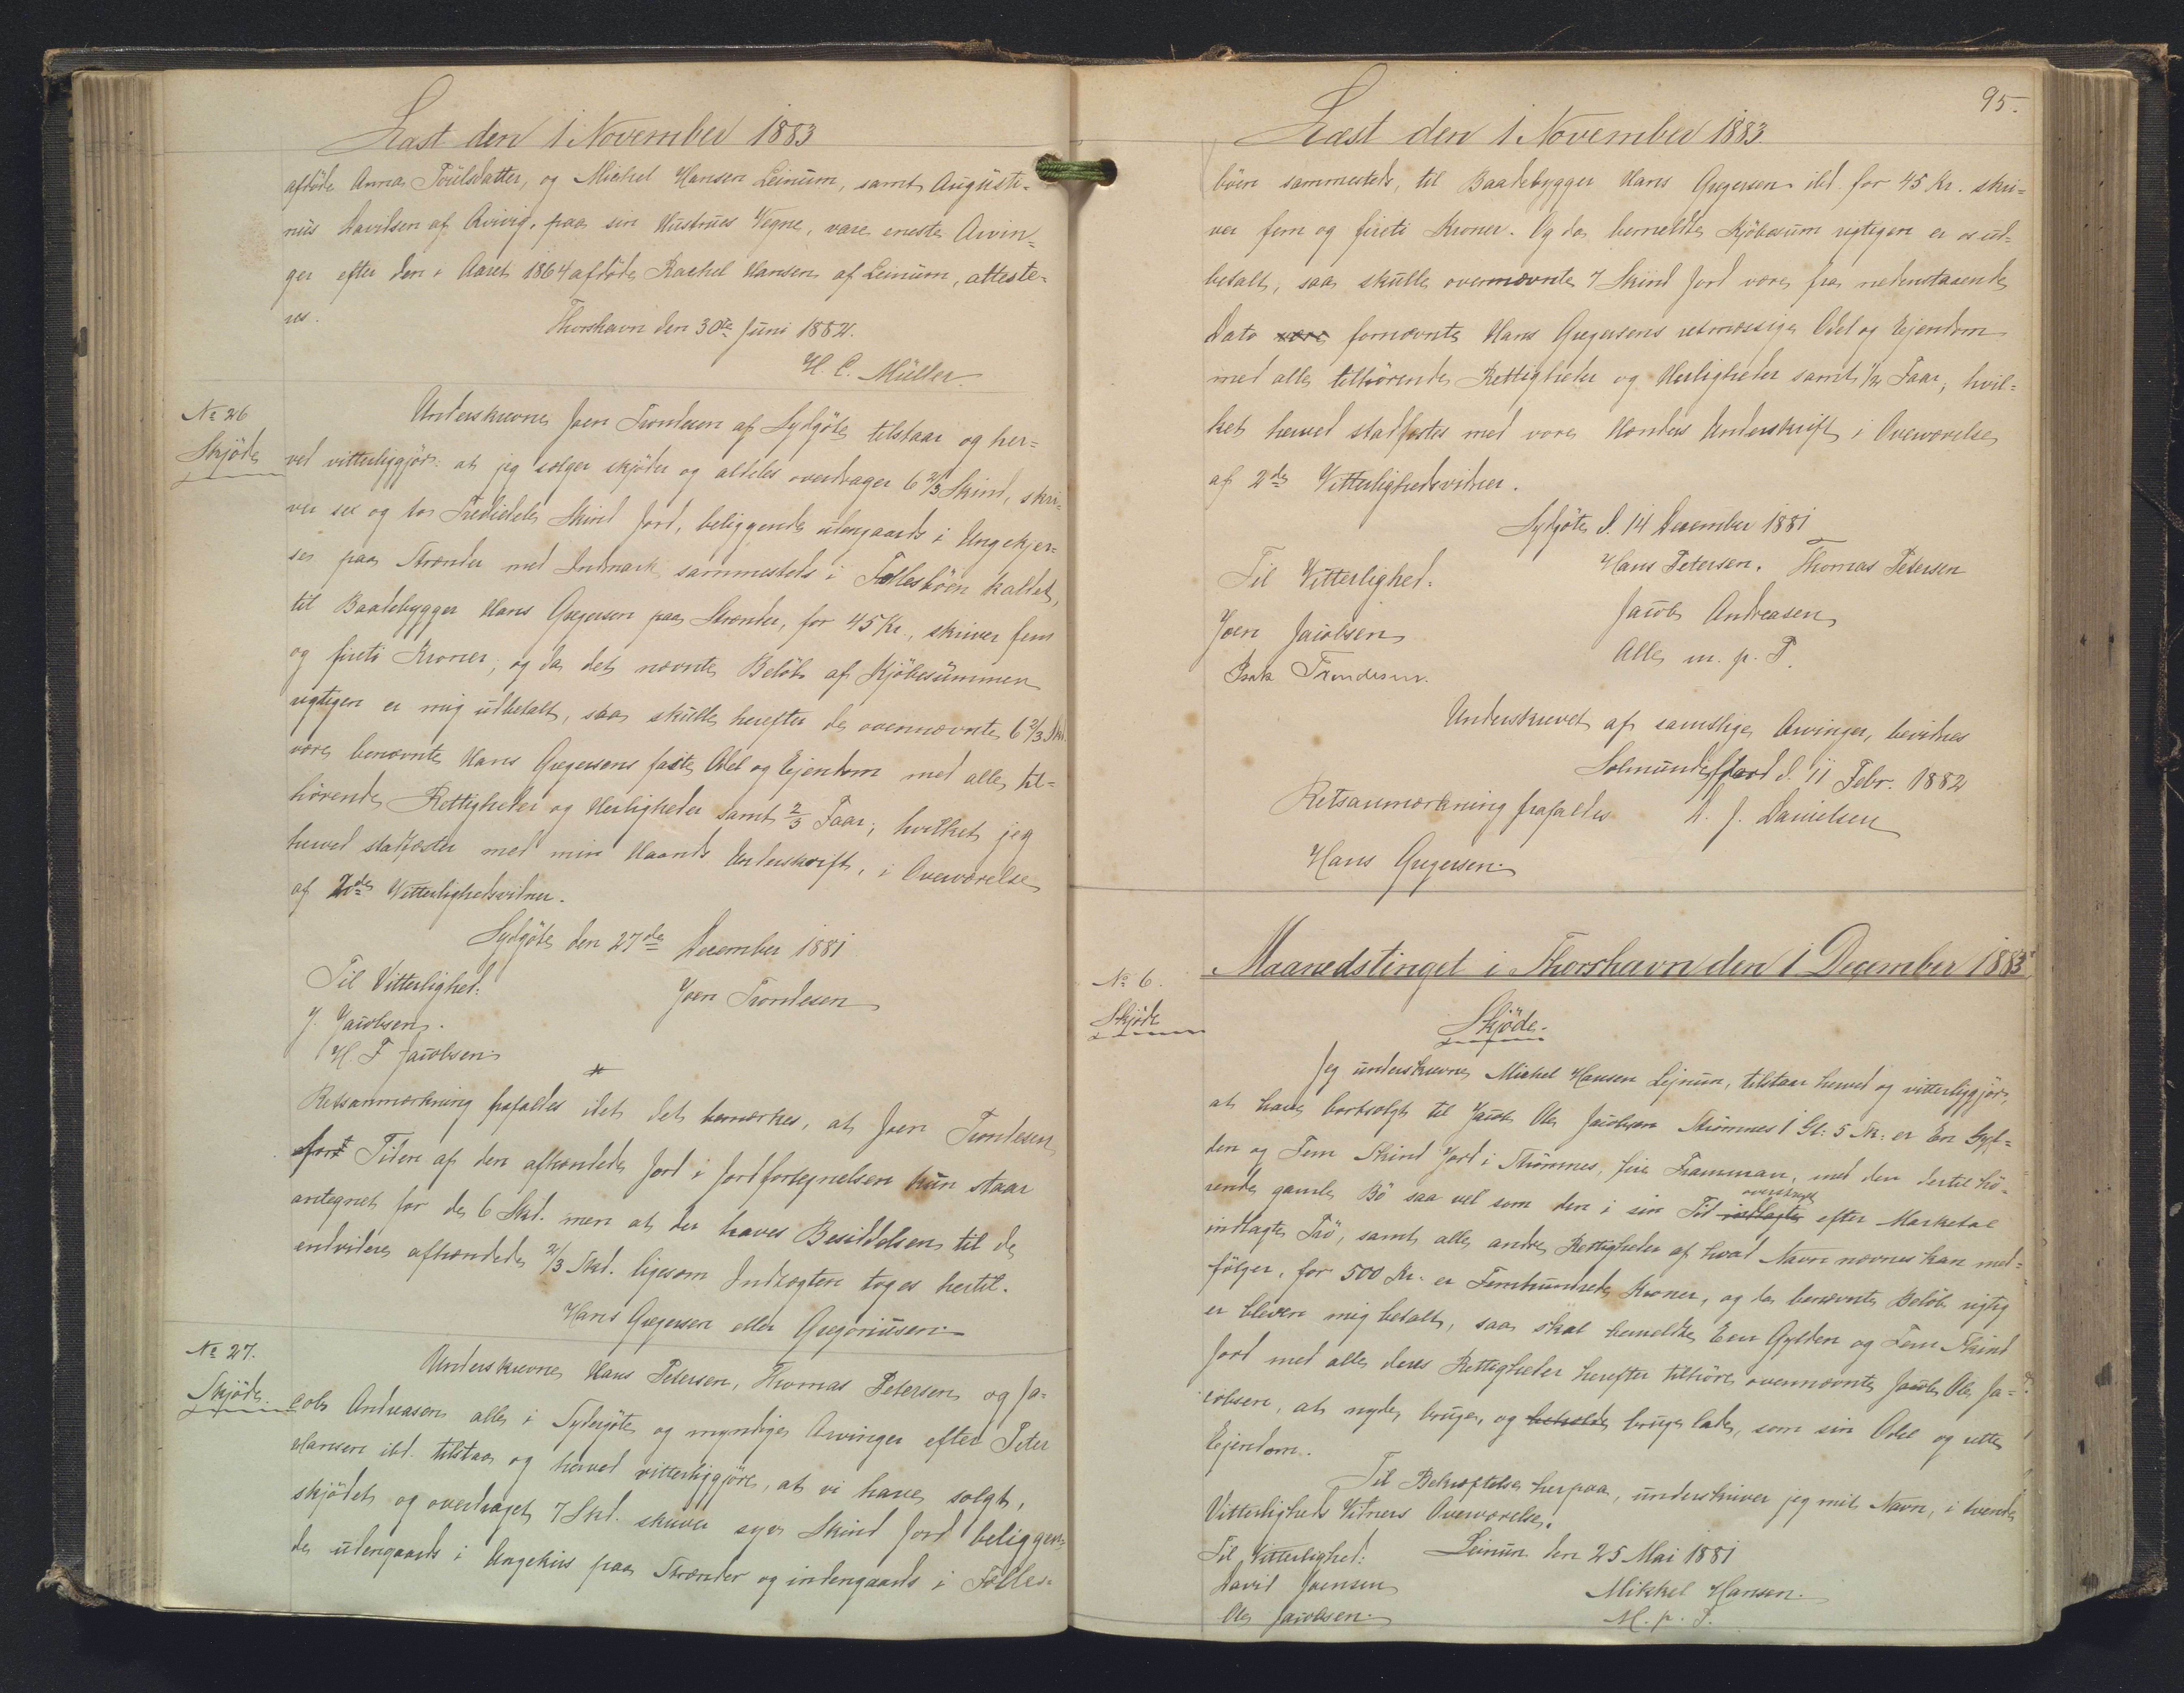 Læst den 1 November 1883
afdöde Anna Poulsdatter, og Michel Hansen Leinum, samt Augusti=
nus Davidsen af Qvivig, paa sin Hustrues Vegne, vare eneste Arvin=
ger efter den i Aaret 1864 afdöde Rachel Hansen af Leinum, atteste=
res.
Thorshavn den 30te Juni 1882.
H. C. Müller.
No 26
Skjöde
Underskrevne Joen Trondesen af Sydgöte tilstaar og her=
ved vitterliggjör: at jeg sælger skjöder og aldeles overdrager 6 2/3 Skind, skri=
ver sex og to Trediedele Skind Jord, beliggende udengaards i Ungekjer=
ses paa Strænder med Indmark sammesteds i Fællesböen kaldet,
til Baadebygger Hans Gregersen paa Strænder, for 45 Kr., skriver fem
og fireti Kroner; og da det nævnte Belöb af Kjöbesummen
rigtigen er mig udbetalt, saa skulle herefter de ovennævnte 6 2/3 Skd.
være benævnte Hans Gregersens faste Odel og Ejendom med alle til=
hörende Rettigheder og Herligheder samt 2/3 Faar; hvilket jeg
herved stadfæster med min Haands Underskrift, i Overværelse
af 2de Vitterlighedsvidner.
Sydgöte den 27de December 1881
Til Vitterlighed:
Joen Trondesen
J. Jacobsen.
H. F. Jacobsen
Retsanmærkning frafaldes idet det bemærkes, at Joen Trondesen
fort Tiden af den afhændede Jord i Jordfortegnelsen kun staar
antegnet for de 6 Skd. men at der haves Besiddelsen til de
endvidere afhændede 2/3 Skd. ligesom Indtægten toges hertil.
Hans Gregersen eller Gregoriusen
No 27.
Skjöde.
Underskrevne Hans Petersen, Thomas Petersen og Ja=
cob Andreasen alle i Sydergöte og myndige Arvinger efter Peter
Hansen ibd. tilstaa og herved vitterliggjöre, at vi have solgt,
skjödet og overdraget 7 Skd. skriver syv Skind Jord beliggen=
de udengaards i Ungekius paa Strænder og indengaards i Fælles=
95.
Læst den 1 November 1883.
böen sammesteds, til Baadebygger Hans Gregersen ibd. for 45 Kr. skri=
ver fem og fireti Kroner. Og da bemeldte Kjöbesum rigtigen er os ud=
betalt, saa skulle overnævnte 7 Skind Jord være fra nedenstaaende
Dato være fornævnte Hans Gregersens retmæssige Odel og Ejendom
med alle tilhörende Rettigheder og Herligheder samt 1/2 Faar; hvil=
ket herved stadfæstes med vore Hænders Underskrift i Overværelse
af 2de Vitterlighedsvidner.
Sydgöte d. 14 December 1881
Til Vitterlighed:
Hans Petersen. Thomas Petersen
Joen Jacobsen
Jacob Andreasen
Isak Trondesen.
Alle m. p. P.
Underskrevet af samtlige Arvinger, bevidnes
Solmundefjord d. 11 Febr. 1882
Retsanmærkning frafaldes
D. J. Danielsen
Hans Gregersen
Maanedstinget i Thorshavn den 1 December 1883
No 6.
Skjöde
Skjöde.
Jeg underskrevne Michel Hansen Lejnum, tilstaar herved og vitterliggjör,
at have bortsolgt til Jacob Ole Jacobsen Skömnes 1 Gl: 5 Sk: er En Gyl=
den og Fem Skind Jord i Skömnes, fire Frammann, med den dertil hö=
rende gamle Bö saa vel som den i sin Tid indtagte overstregt efter Marketal
indtagte Trö, samt alle andre Rettigheder af hvad Navn nævnes kan med=
fölger, for 500 Kr. er Femhundrede Kroner, og da benævnte Belöb rigtig
er bleven mig betalt, saa skal bemeldte Een Gylden og Fem Skind
Jord med alle deres Rettigheder herefter tilhöre ovennævnte Jacob Ole Ja=
cobsen, at nyde, bruge, og beholde bruge lade, som sin Odel og rette
Ejendom.
Til Bekræftelse herpaa, underskriver jeg mit Navn, i tvende
Vitterligheds Vidners Overværelse.
Til Vitterlighed:
Leinum den 25 Mai 1881
David Joensen
Mikkel Hansen.
Ole Jacobsen
M. p. P.